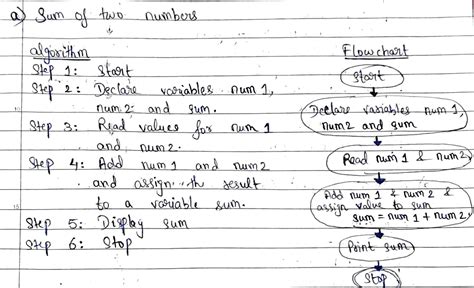 a) Sum of two numbers
algorithm
Step 1: Start
Step 2: Declare variables num 1,
num 2 and sum.
Step 3: Read values for num 1
and num 2.
Step 4: Add num 1 and num 2
and assign th result
to a variable sum.
Step 5: Display sum
Step 6: Stop
Flowchart
Start
Declare variables num 1,
num 2 and sum
Read num 1 & num 2
Add num 1 & num 2 &
assign value to sum
sum = num 1 + num 2
Print sum
Stop